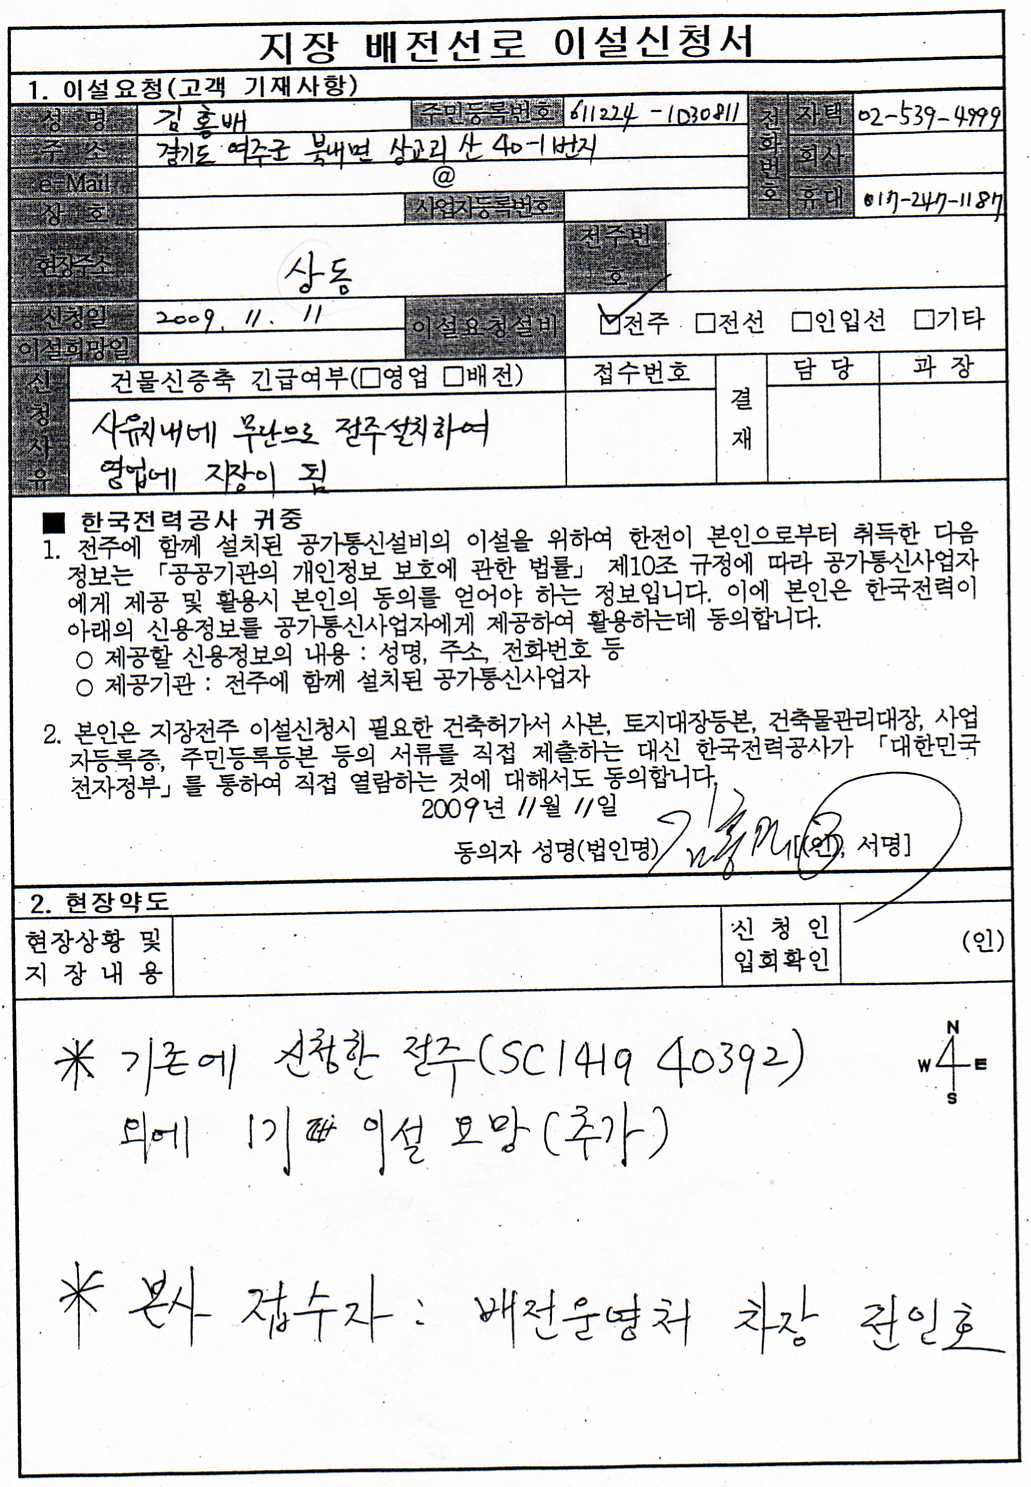 지장 배전선로 이설신청서
1. 이설요청(고객 기재사항)
성 명 김홍배 주민등록번호 611224-1030811 전화번호 자택 02-539-4999
주 소 경기도 여주군 북내면 상교리 산 40-1번지 회사
e-Mail @ 휴대 017-247-1187
상 호 사업자등록번호
현장주소 상동 전주번호
신청일 2009. 11. 11 이설요청설비 ☑전주 □전선 □인입선 □기타
이설희망일
신청사유 건물신증축 긴급여부(□영업 □배전) 접수번호 결재 담 당 과 장
사유지내에 무단으로 전주설치하여
영업에 지장이 됨
■ 한국전력공사 귀중
1. 전주에 함께 설치된 공가통신설비의 이설을 위하여 한전이 본인으로부터 취득한 다음
정보는 「공공기관의 개인정보 보호에 관한 법률」 제10조 규정에 따라 공가통신사업자
에게 제공 및 활용시 본인의 동의를 얻어야 하는 정보입니다. 이에 본인은 한국전력이
아래의 신용정보를 공가통신사업자에게 제공하여 활용하는데 동의합니다.
○ 제공할 신용정보의 내용 : 성명, 주소, 전화번호 등
○ 제공기관 : 전주에 함께 설치된 공가통신사업자
2. 본인은 지장전주 이설신청시 필요한 건축허가서 사본, 토지대장등본, 건축물관리대장, 사업
자등록증, 주민등록등본 등의 서류를 직접 제출하는 대신 한국전력공사가 「대한민국
전자정부」를 통하여 직접 열람하는 것에 대해서도 동의합니다.
2009년 11월 11일
동의자 성명(법인명) 김홍배 [(인), 서명]
2. 현장약도
현장상황 및 지 장 내 용 신 청 인 입회확인 (인)
N
W E
S
* 기존에 신청한 전주(SC1419 40392)
외에 1기 이설 요망(추가)
* 본사 접수자 : 배전운영처 차장 전인호